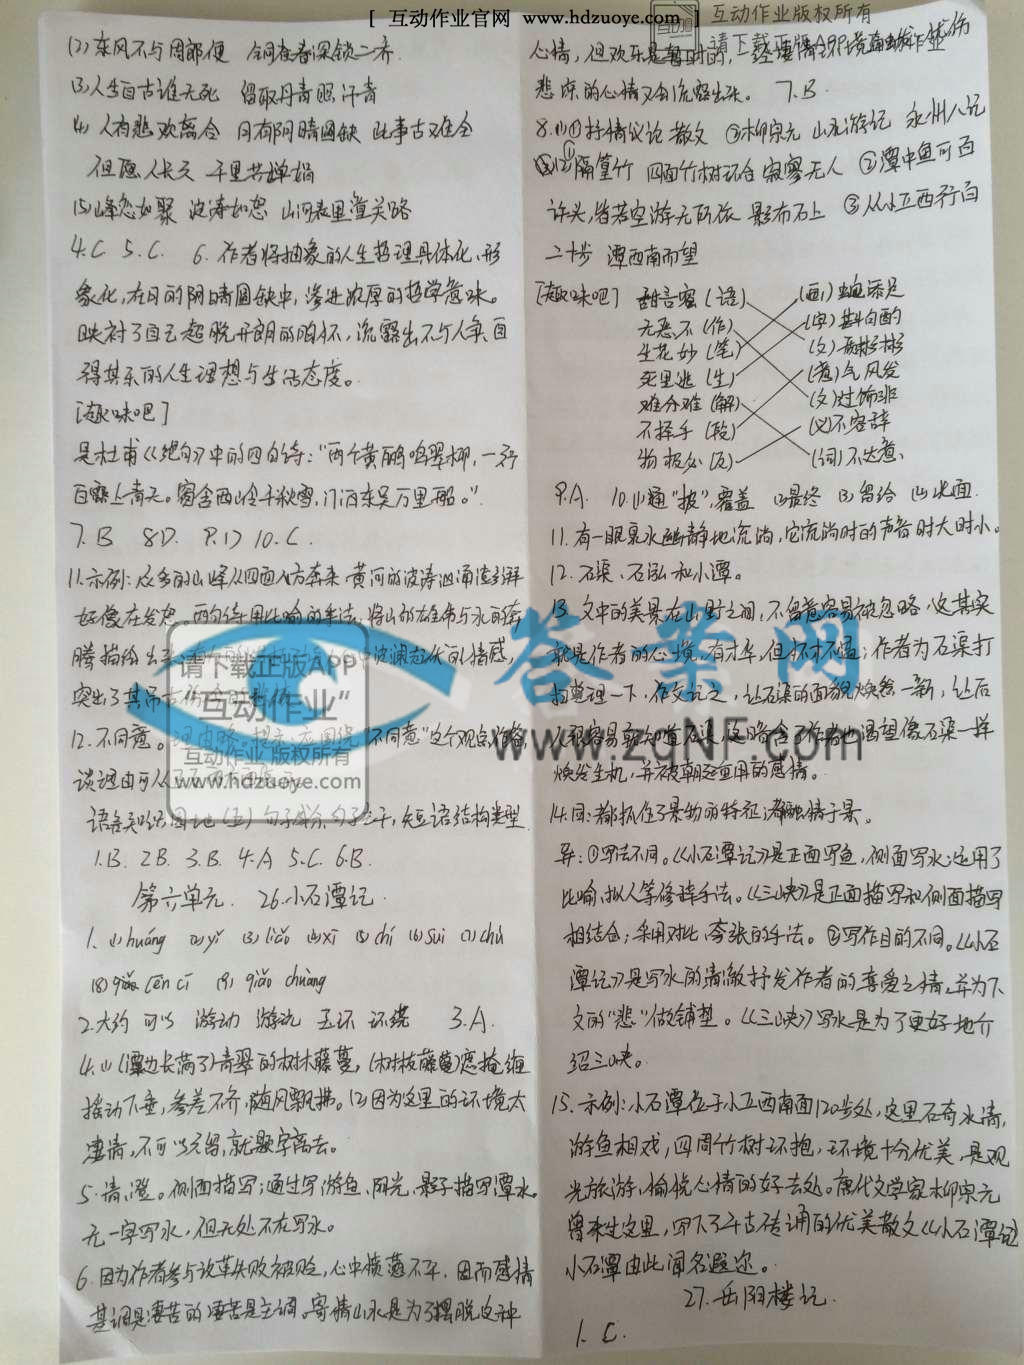 [ 互动作业官网 www.hdzuoye.com ]
互动作业版权所有
请下载正版APP
(2)东风不与周郎便 铜雀春深锁二乔
(3)人生自古谁无死 留取丹青照汗青
(4) 人有悲欢离合 月有阴晴圆缺 此事古难全
但愿人长久 千里共婵娟
(5)峰峦如聚 波涛如怒 山河表里潼关路
4.C 5.C. 6.作者将抽象的人生哲理具体化、形
象化,在月的阴晴圆缺中,渗进浓厚的哲学意味。
映衬了自己超脱开朗的胸怀,流露出不与人争、自
得其乐的人生理想与生活态度。
[趣味吧]
是杜甫《绝句》中的四句诗:“两个黄鹂鸣翠柳,一行
白鹭上青天。窗含西岭千秋雪,门泊东吴万里船。”
7.B 8.D. 9.D 10.C.
11.示例:众多的山峰从四面八方奔来,黄河的波涛汹涌澎湃
好像在发怒。两句诗用比喻的手法,将山的雄伟与水的奔
腾描绘出来 波澜起伏的情感,
突出了其吊古伤今
12.不同意。 “不同意”这个观点
谈理由可从
语文知识园地(五) 句子成分、句子主干,短语结构类型
1.B. 2.B. 3.B. 4.A 5.C. 6.B.
第六单元. 26.小石潭记.
1. (1)huáng (2)yǐ (3)liáo (4)xī (5)chí (6)suì (7)chú
(8)cēn cī (9)qiǎo chuàng
2.大约 可以 游动 游玩 玉环 环绕 3.A.
4.(1)(潭边长满了)青翠的树木藤蔓,(树枝藤蔓)遮掩缠
摇动下垂,参差不齐,随风飘拂。(2)因为这里的环境太
凄清,不可以久留,就题字离去。
5.清澄。侧面描写;通过写游鱼、阳光、影子描写潭水。
无一字写水,但无处不在写水。
6.因为作者参与改革失败被贬,心中愤懑不平.因而感情
基调是凄苦的凄苦是主调。寄情山水是为了摆脱这种
心情,但欢乐是暂时的,一经凄清环境 忧伤
悲凉的心情又会流露出来。 7.B.
8.(1)①抒情议论 散文 ②柳宗元 山水游记 永州八记
(2)①隔篁竹 四面竹树环合 寂寥无人 ②潭中鱼可百
许头,皆若空游无所依 影布石上 ③从小丘西行百
二十步 潭西南而望
[趣味吧] 甜言蜜(语) (画)蛇添足
无恶不(作) (字)斟句酌
生花妙(笔) (文)质彬彬
死里逃(生) (意)气风发
难分难(解) (文)过饰非
不择手(段) (义)不容辞
物极必(反) (词)不达意.
9.A. 10.(1)通“披”,覆盖 (2)最终 (3)留给 (4)北面.
11.有一眼泉水幽静地流淌,它流淌时的声音时大时小。
12.石渠、石泓和小潭。
13.文中的美景在山野之间,不留意容易被忽略.这其实
就是作者的心境,有才华,但怀才不遇;作者为石渠打
扫整理一下,作文记之,让石渠的面貌焕然一新,让后
人很容易就知道石渠,这暗含了作者也渴望像石渠一样
焕发生机,并被朝廷重用的感情。
14.同:都抓住了景物的特征;都融情于景。
异:①写法不同。《小石潭记》是正面写鱼,侧面写水;运用了
比喻、拟人等修辞手法。《三峡》是正面描写和侧面描写
相结合;采用对比、夸张的手法。②写作目的不同。《小石
潭记》是写水的清澈抒发作者的喜爱之情,并为下
文的“悲”做铺垫。《三峡》写水是为了更好地介
绍三峡。
15.示例:小石潭位于小丘西南面120步处,这里石奇水清,
游鱼相戏,四周竹树环抱,环境十分优美,是观
光旅游,愉悦心情的好去处。唐代文学家柳宗元
曾来过这里,写下了千古传诵的优美散文《小石潭记》
小石潭由此闻名遐迩。
27.岳阳楼记.
1. C.
请下载正版APP
“互动作业”
互动作业版权所有
www.hdzuoye.com
答案网
www.zqNF.com